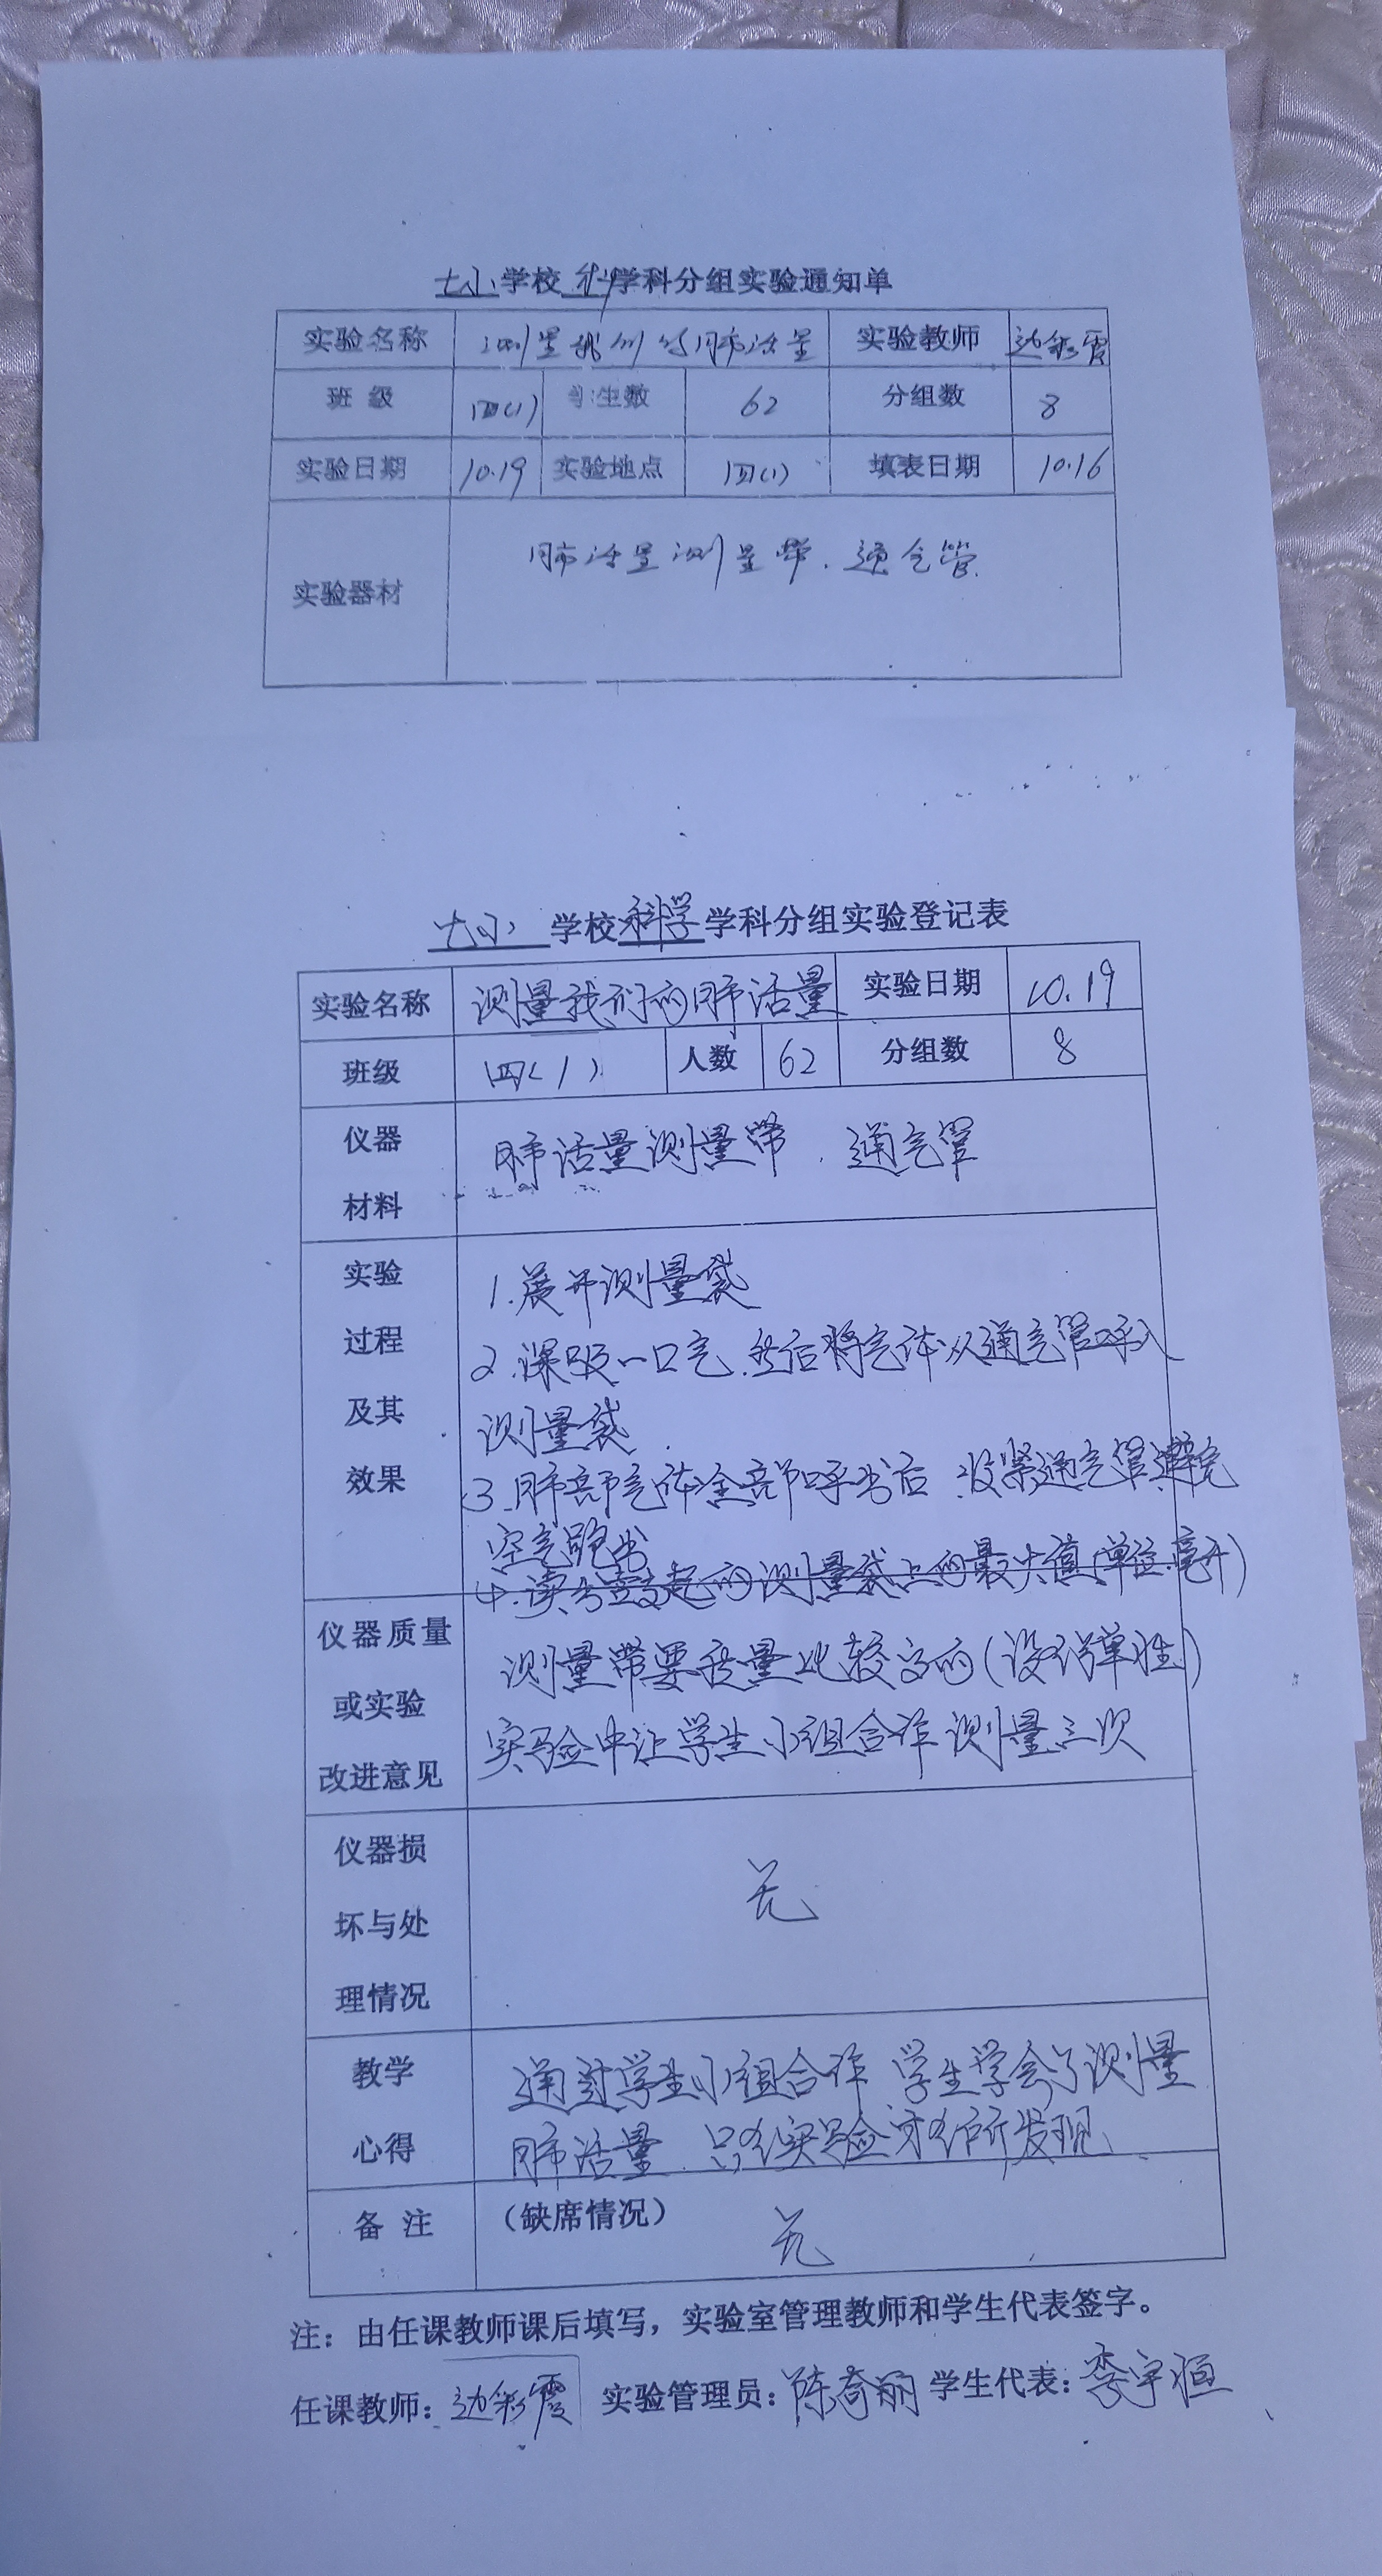 七小学校科学科分组实验通知单
实验名称 测量我们的肺活量 实验教师 边彩霞
班 级 四(1) 学生数 62 分组数 8
实验日期 10.19 实验地点 四(1) 填表日期 10.16
实验器材 肺活量测量带.通气管
七小 学校科学学科分组实验登记表
实验名称 测量我们的肺活量 实验日期 10.19
班级 四(1) 人数 62 分组数 8
仪器
材料
肺活量测量带.通气管
实验
过程
及其
效果
1.展开测量袋
2.深吸一口气.然后将气体从通气管呼入
测量袋.
3.肺部气体全部呼出后.收紧通气管避免
空气跑出
4.读出鼓起的测量袋上的最大值(单位.毫升)
仪器质量
或实验
改进意见
测量带要质量比较好的(没有弹性)
实验中让学生小组合作测量三次
仪器损
坏与处
理情况
无
教学
心得
通过学生小组合作 学生学会了测量
肺活量.只有实验才有所发现.
备 注 (缺席情况) 无
注：由任课教师课后填写，实验室管理教师和学生代表签字。
任课教师：边彩霞 实验管理员：陈奇丽 学生代表：李宇恒